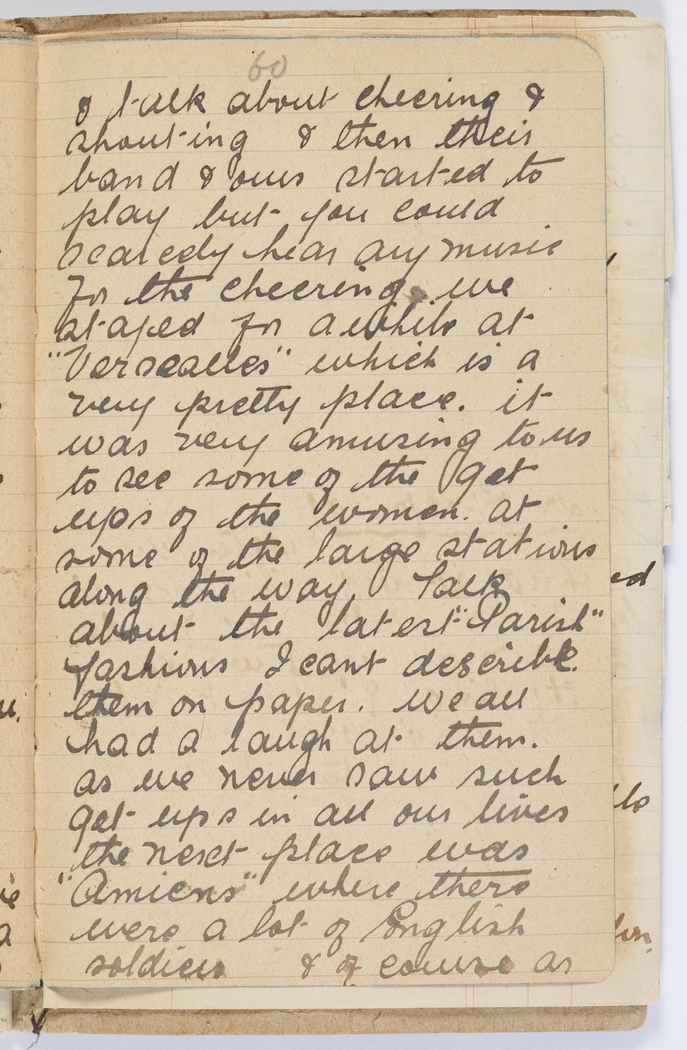 60
& talk about cheering &
shouting & then their
band & ours started to
play but you could
scarcely hear any music
for the cheering. we
stayed for a while at
"Versealles" which is a
very pretty place. it
was very amusing to us
to see some of the get
ups of the women. at
some of the large stations
along the way. Talk
about the latest "Parish"
fashions I cant describe
them on paper. we all
had a laugh at them.
as we never saw such
get ups in all our lives
the next place was
"Amiens" where there
were a lot of English
soldiers & of course as